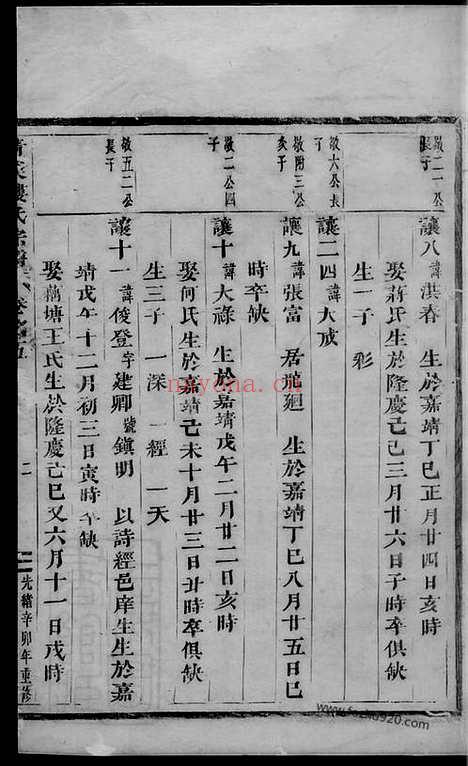 敬二一公長子
讓八 諱淇春 生於嘉靖丁巳正月廿四日亥時
娶蔣氏生於隆慶己巳三月廿六日子時卒俱缺
生一子 彩
敬六公長子
讓二四 諱大戒
敬附三公亥子
讓九 諱張富 居埴廻 生於嘉靖丁巳八月廿五日巳
時卒缺
敬二公四子
讓十 諱大祿 生於嘉靖戊午二月廿二日亥時
娶何氏生於嘉靖己未十月廿三日丑時卒俱缺
生三子 一深 一經 一天
敬五二公長子
讓十一 諱俊登 字建卿 號鎭明 以詩經邑庠生生於嘉
靖戊午十二月初三日寅時卒缺
娶藕塘王氏生於隆慶己巳又六月十一日戌時
樓氏宗譜
二
光緒辛卯年重修
nayona.ca